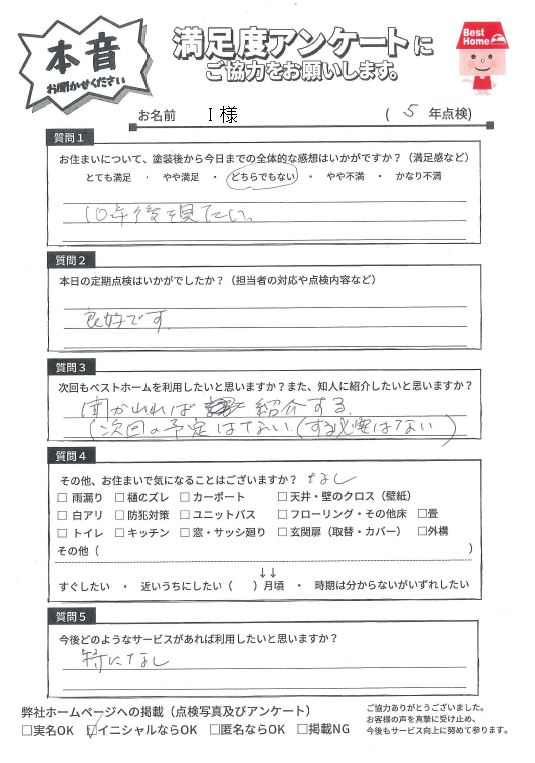 本音
お聞かせください
満足度アンケートに
ご協力をお願いします。
Best Home
お名前 I 様 ( 5 年点検)
質問1
お住まいについて、塗装後から今日までの全体的な感想はいかがですか？（満足感など）
とても満足 ・ やや満足 ・ どちらでもない ・ やや不満 ・ かなり不満
10年後を見たい。
質問2
本日の定期点検はいかがでしたか？（担当者の対応や点検内容など）
良好です
質問3
次回もベストホームを利用したいと思いますか？また、知人に紹介したいと思いますか？
聞かれれば 紹介する.
(次回の予定はない(する必要はない)
質問4
その他、お住まいで気になることはございますか？ なし
□ 雨漏り □ 樋のズレ □ カーポート □ 天井・壁のクロス（壁紙）
□ 白アリ □ 防犯対策 □ ユニットバス □ フローリング・その他床 □畳
□ トイレ □ キッチン □ 窓・サッシ廻り □ 玄関扉（取替・カバー） □外構
その他（ ）
↓↓
すぐしたい ・ 近いうちにしたい（ ）月頃 ・ 時期は分からないがいずれしたい
質問5
今後どのようなサービスがあれば利用したいと思いますか？
特になし
弊社ホームページへの掲載（点検写真及びアンケート）
□実名OK ☑イニシャルならOK □匿名ならOK □掲載NG
ご協力ありがとうございました。
お客様の声を真摯に受け止め、
今後もサービス向上に努めて参ります。